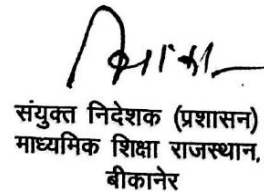 संयुक्त निदेशक (प्रशासन)
माध्यमिक शिक्षा राजस्थान,
बीकानेर